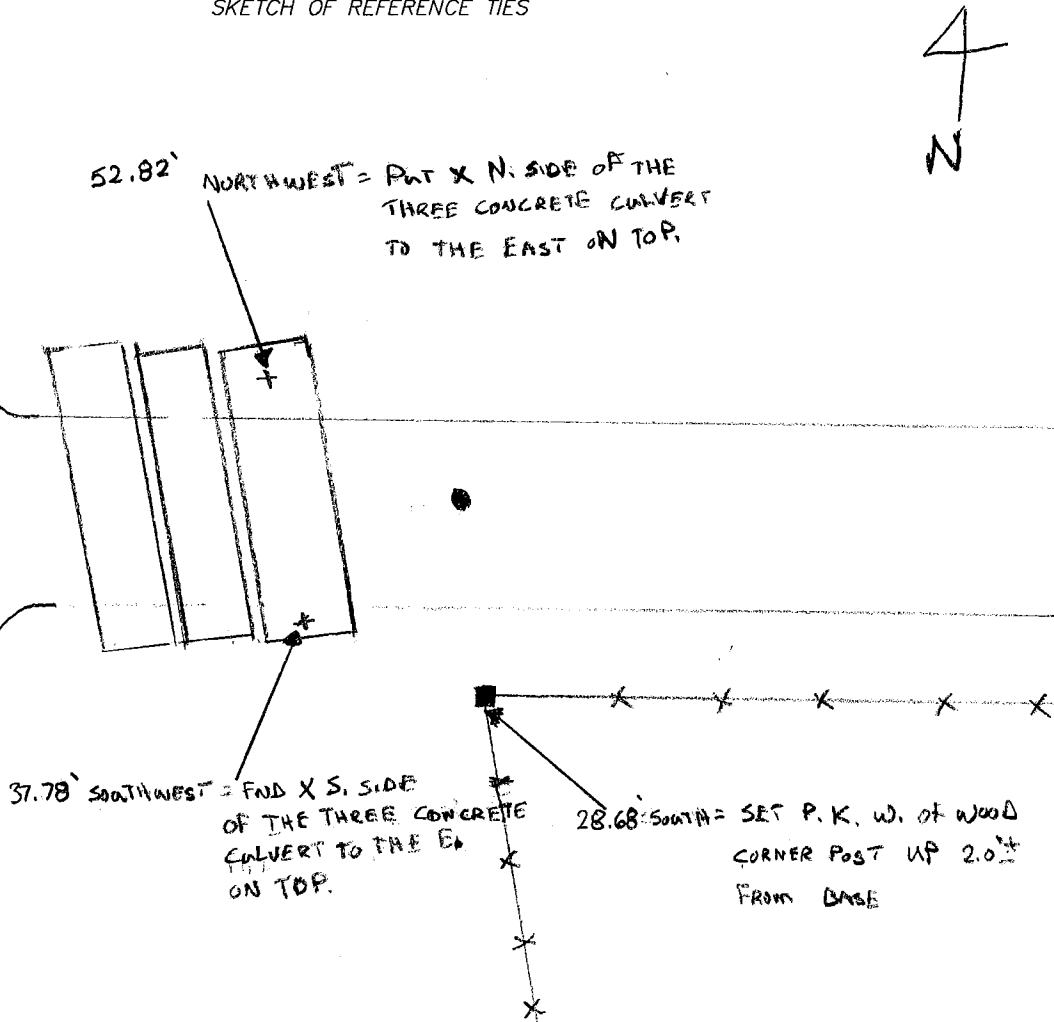 SKETCH OF REFERENCE TIES
N
52.82' NORTHWEST = PUT X N. SIDE OF THE
THREE CONCRETE CULVERT
TO THE EAST ON TOP.
37.78' SOUTHWEST = FND X S. SIDE
OF THE THREE CONCRETE
CULVERT TO THE E.
ON TOP.
28.68' SOUTH = SET P.K. W. of WOOD
CORNER POST UP 2.0'±
FROM BASE